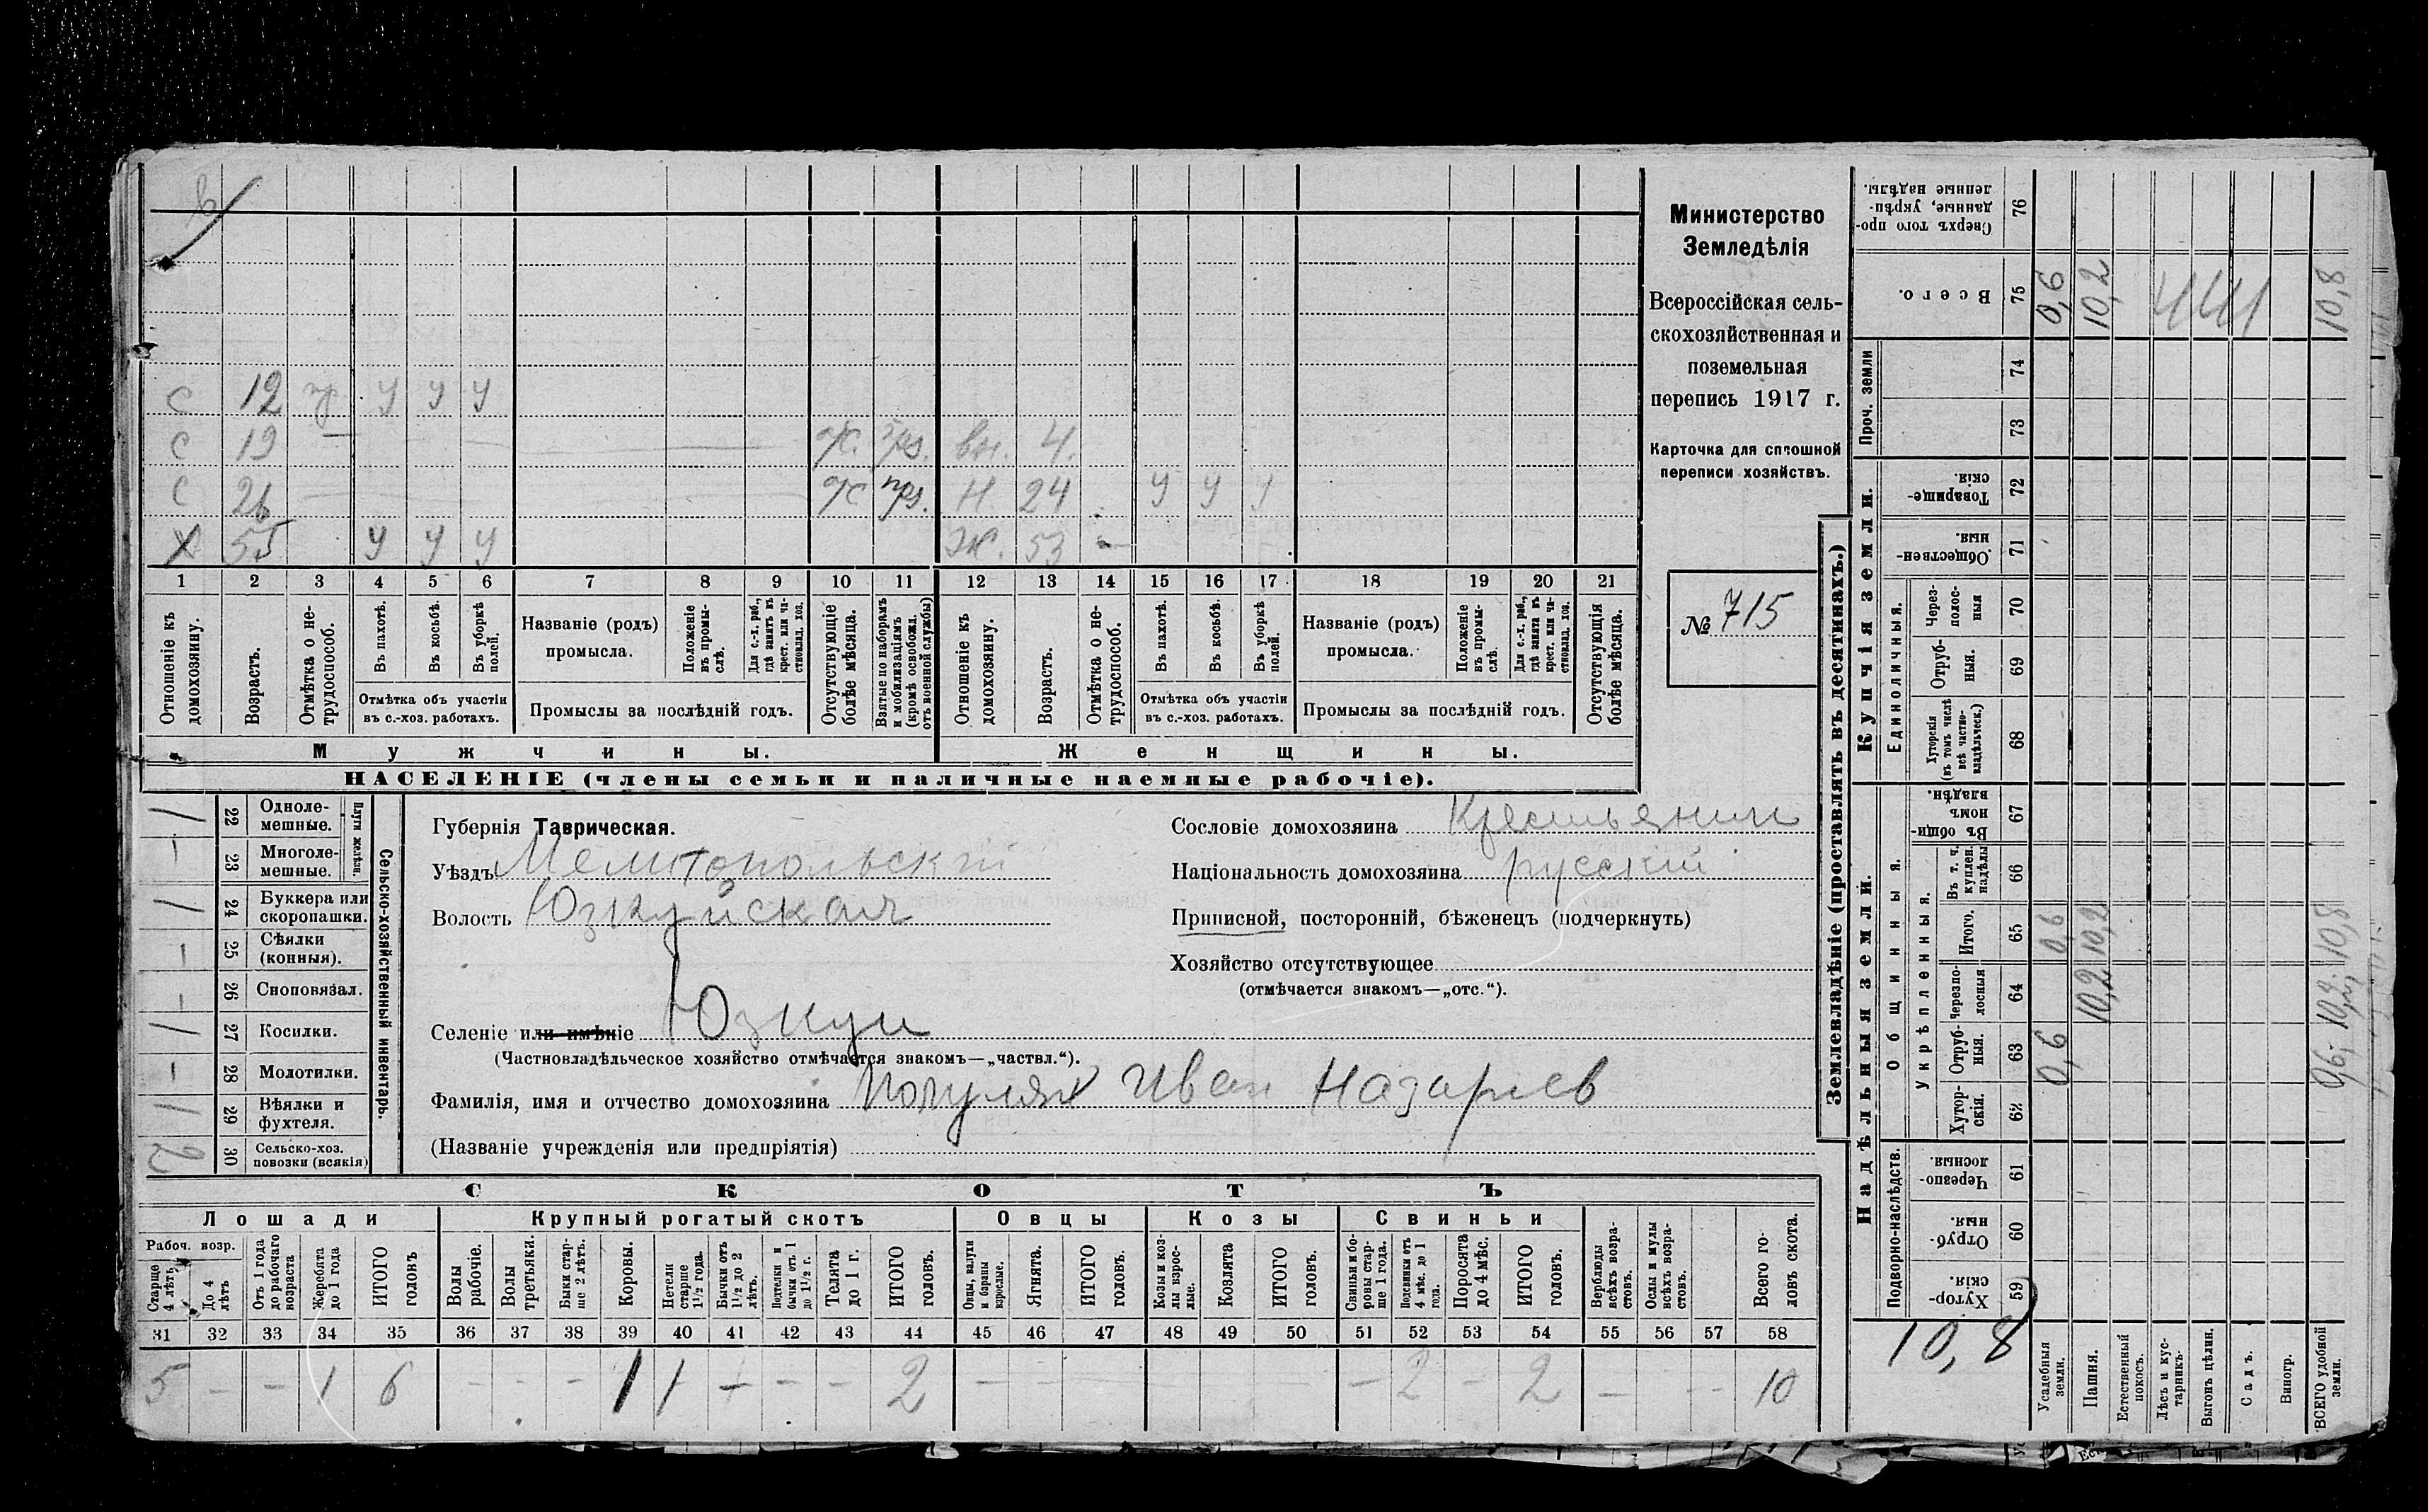 Министерство
Земледѣлія
Всероссійская сель-
скохозяйственная и
поземельная
перепись 1917 г.
Карточка для сплошной
переписи хозяйствъ.
№ 715
С 12 у у у
С 19 вн. 4.
С 26 Н 24 у у у
Х 55 у у у Ж. 53
1 2 3 4 5 6 7 8 9 10 11 12 13 14 15 16 17 18 19 20 21
Отношеніе къ домохозяину.
Возрастъ.
Отмѣтка о не-трудоспособ.
Въ пахотѣ.
Въ косьбѣ.
Въ уборкѣ полей.
Отмѣтка объ участіи
въ с.-хоз. работахъ.
Названіе (родъ)
промысла.
Положеніе въ промы-слѣ.
Для с.-х. раб., гдѣ занятъ въ крест. или ча-стновлад. хоз.
Промыслы за послѣдній годъ.
Отсутствующіе болѣе мѣсяца.
Взятые по наборамъ и мобилизаціямъ (кромѣ освобожд. отъ военной службы)
Отношеніе къ домохозяину.
Возрастъ.
Отмѣтка о не-трудоспособ.
Въ пахотѣ.
Въ косьбѣ.
Въ уборкѣ полей.
Отмѣтка объ участіи
въ с.-хоз. работахъ.
Названіе (родъ)
промысла.
Положеніе въ промы-слѣ.
Для с.-х. раб., гдѣ занята въ крест. или ча-стновлад. хоз.
Промыслы за послѣдній годъ.
Отсутствующія болѣе мѣсяца.
Мужчины. Женщины.
НАСЕЛЕНІЕ (члены семьи и наличные наемные рабочіе).
Сельско-хозяйственный инвентарь.
Плуги желѣзн.
/ 22 Одноле-мешные.
– 23 Многоле-мешные.
/ 24 Буккера или скоропашки.
– 25 Сѣялки (конныя).
– 26 Сноповязал.
/ 27 Косилки.
– 28 Молотилки.
/ 29 Вѣялки и фухтеля.
2 30 Сельско-хоз. повозки (всякія)
Губернія Таврическая.
Уѣздъ Мелитопольскій
Волость Юзкуйская
Селеніе или имѣніе Юзкуи
(Частновладѣльческое хозяйство отмѣчается знакомъ—„частвл.“).
Фамилія, имя и отчество домохозяина Иван Назарiев
(Названіе учрежденія или предпріятія)
Сословіе домохозяина Крестьянин
Національность домохозяина русскій
Приписной, посторонній, бѣженецъ (подчеркнуть)
Хозяйство отсутствующее
(отмѣчается знакомъ—„отс.“).
СКОТЪ
Лошади Крупный рогатый скотъ Овцы Козы Свиньи
Рабоч. возр.
Старше 4 лѣтъ
До 4 лѣтъ
Отъ 1 года до рабочаго возраста
Жеребята до 1 года
ИТОГО головъ
Волы рабочіе.
Волы третьяки.
Быки стар-ше 2 лѣтъ.
Коровы.
Нетели старше 1½ года.
Бычки отъ 1½ до 2 лѣтъ.
Подтелки и бычки отъ 1 до 1½ г.
Телята до 1 г.
ИТОГО головъ.
Овцы, валухи и бараны взрослые.
Ягнята.
ИТОГО головъ.
Козы и коз-лы взрос-лые.
Козлята
ИТОГО головъ.
Свиньи и бо-ровы стар-ше 1 года.
Подсвинки отъ 4 мѣс. до 1 года.
Поросята до 4 мѣс.
ИТОГО головъ.
Верблюды всѣхъ возра-стовъ.
Ослы и мулы всѣхъ возра-стовъ.
Всего го-ловъ скота.
31 32 33 34 35 36 37 38 39 40 41 42 43 44 45 46 47 48 49 50 51 52 53 54 55 56 57 58
5 – – 1 6 – – – 1 1 – – – 2 – – – – 2 – 2 – – 10
Землевладѣніе (проставлять въ десятинахъ.)
Надѣльныя земли. Купчія земли. Проч. земли
Подворно-наслѣдств.
Общинныя.
Укрѣпленныя.
Единоличныя.
59 Хутор-скія.
60 Отруб-ныя.
61 Черезпо-лосныя.
62 Хутор-скія.
63 Отруб-ныя.
64 Черезпо-лосныя
65 Итого.
66 Въ т. ч. куплен. надѣлы
67 Въ общин-номъ владѣн.
68 Хуторскія (въ томъ числѣ всѣ частно-владѣльческ.)
69 Отруб-ныя.
70 Через-полос-ныя
71 Обществен-ныя.
72 Товарище-скія.
73
74
75 Всего.
76 Сверхъ того про-данные, укрѣп-ленные надѣлы.
10,8
Усадебныя земли. 0,6 0,6 0,6
Пашня. 10,2 10,2 10,2
Естественный покосъ.
Лѣсъ и кус-тарникъ.
Выгонъ цѣлин.
Садъ.
Виногр.
ВСЕГО удобной земли. 0,6 10,2 10,8 10,8